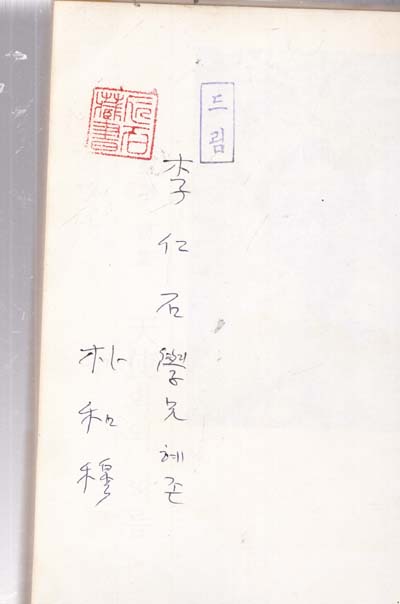 드림
李仁石學兄혜존
朴和穆
仁石藏書